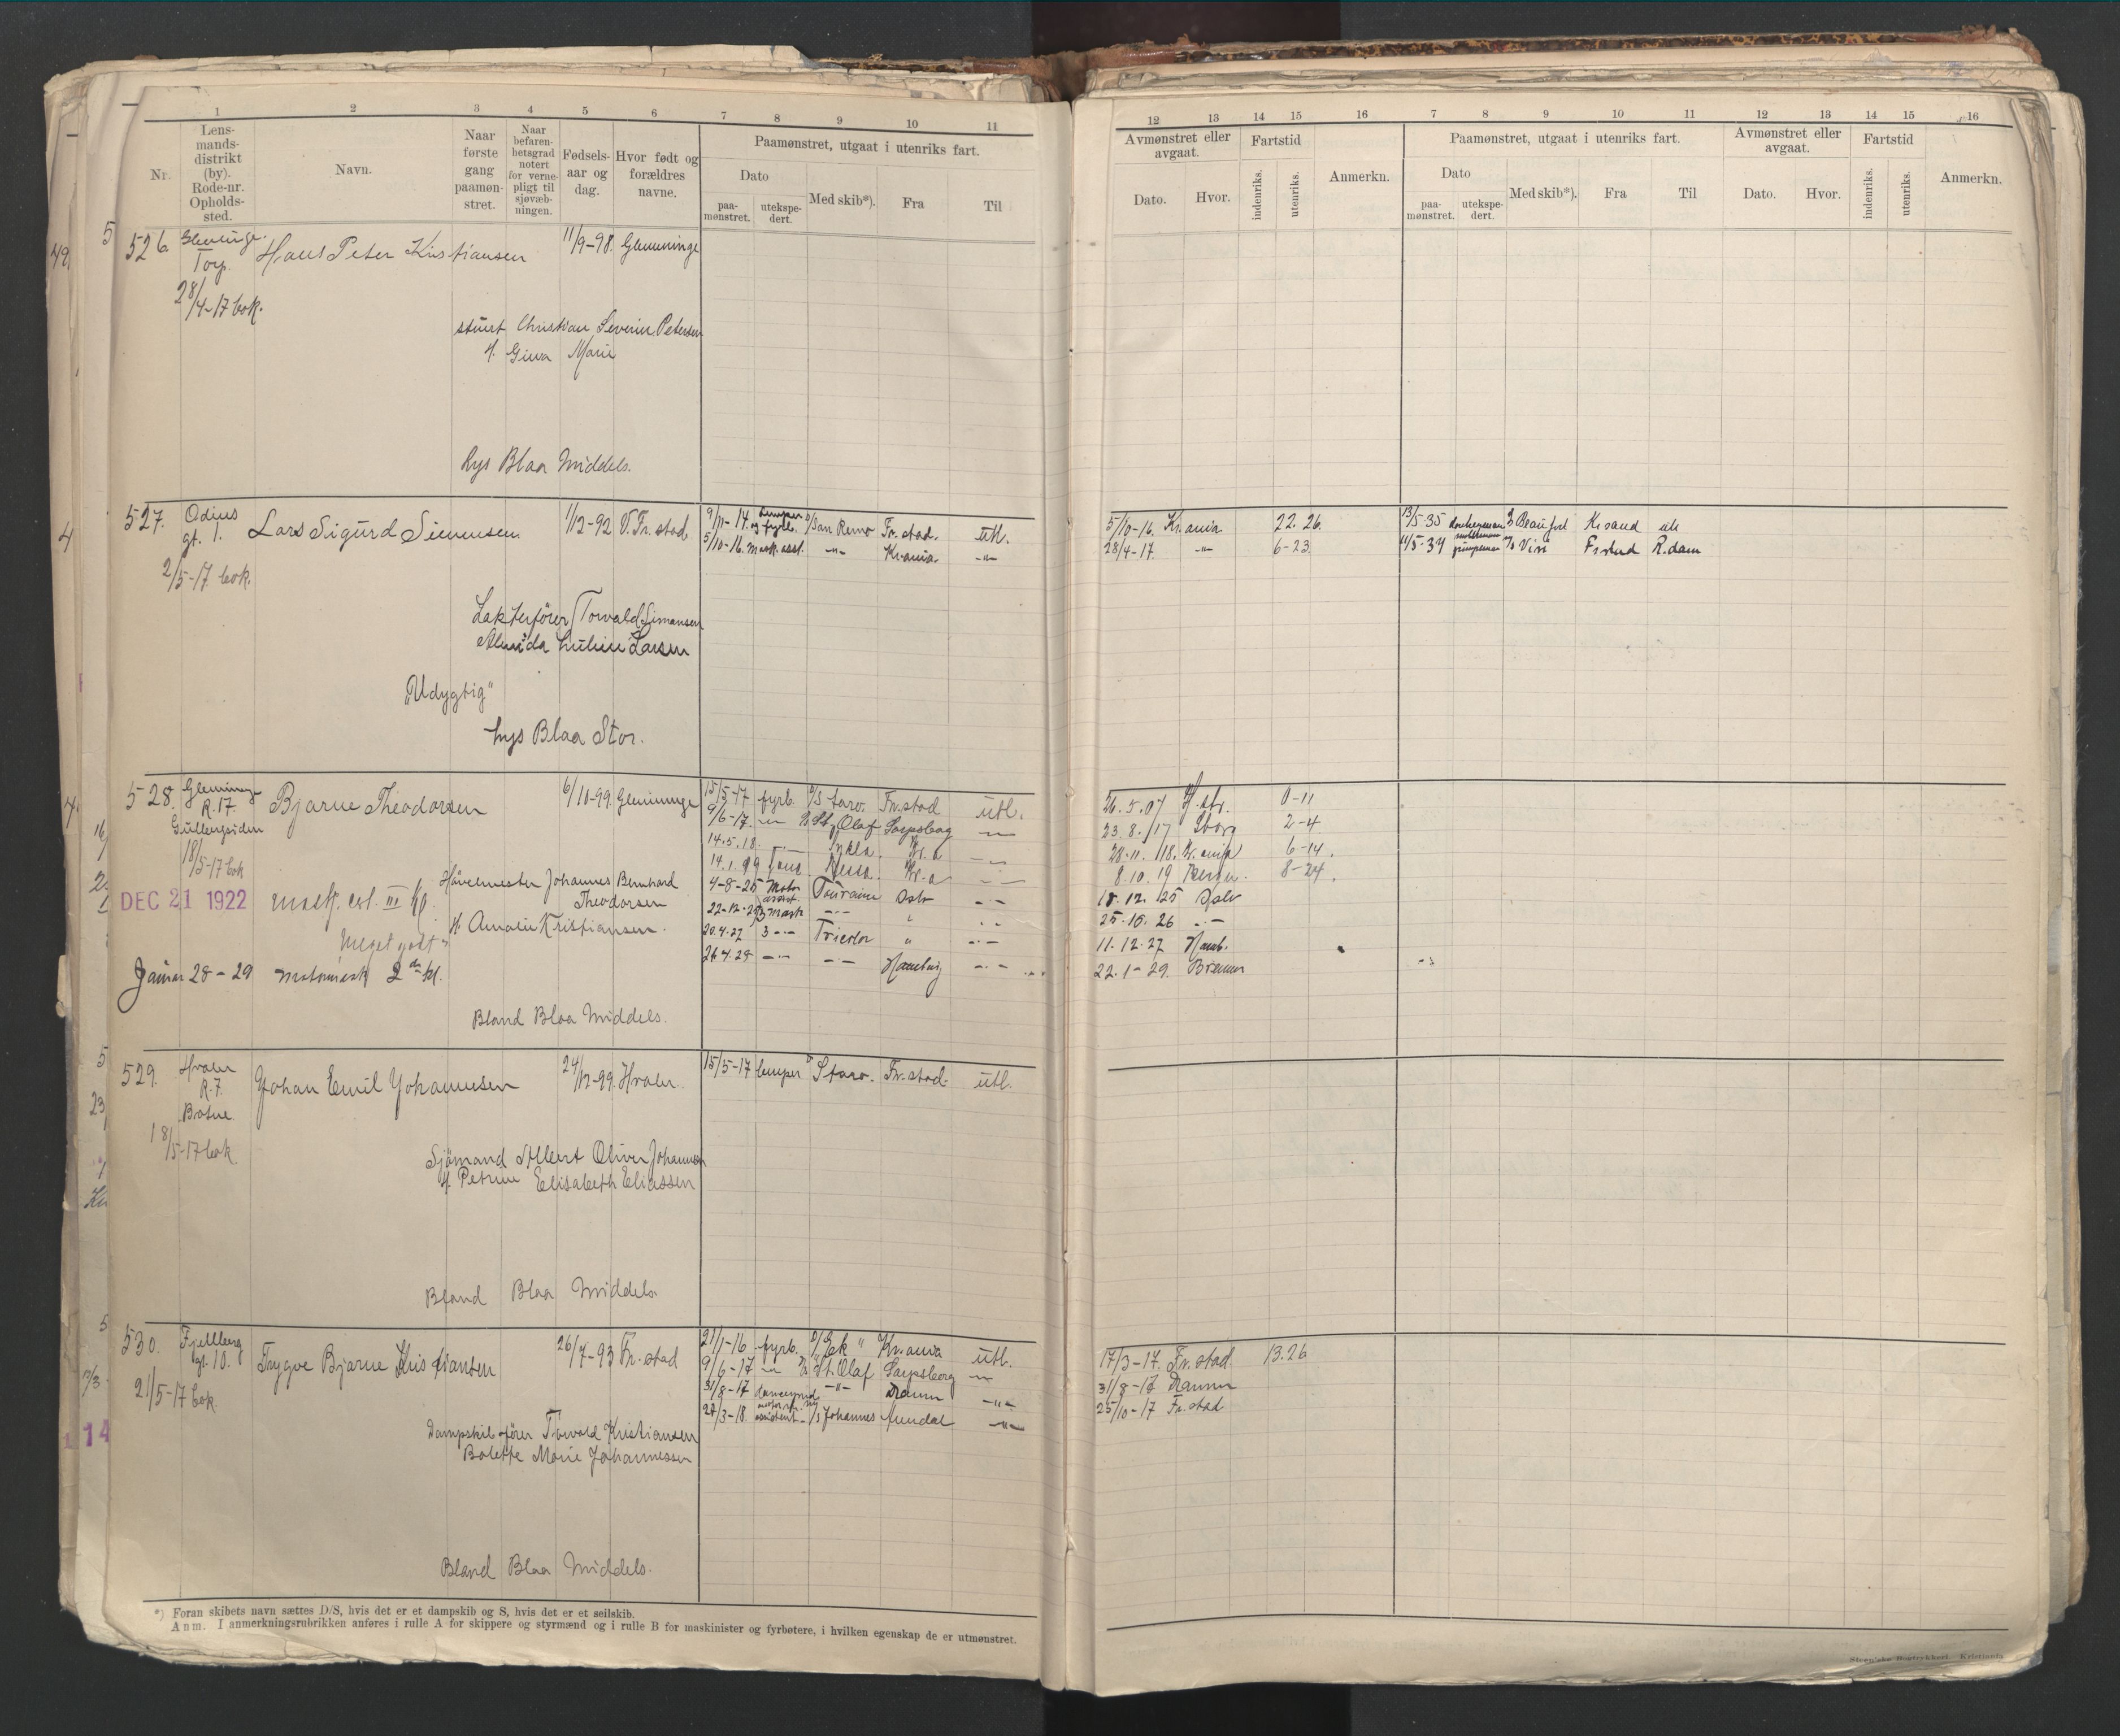 1 2 3 4 5 6 7 8 9 10 11
Nr.
Lens-
mands-
distrikt
(by).
Rode-nr.
Opholds-
sted.
Navn.
Naar
første
gang
paamøn-
stret.
Naar
befaren-
hetsgrad
notert
for verne-
pligt til
sjøvæb-
ningen.
Fødsels-
aar og
dag.
Hvor født og
forældres
navne.
Paamønstret, utgaat i utenriks fart.
Dato
paa-
mønstret.
utekspe-
dert.
Med skib*).
Fra
Til
12 13 14 15 16 7 8 9 10 11 12 13 14 15 16
Avmønstret eller
avgaat.
Dato.
Hvor.
Fartstid
indenriks.
utenriks.
Anmerkn.
Paamønstret, utgaat i utenriks fart.
Dato
paa-
mønstret.
utekspe-
dert.
Med skib*).
Fra
Til
Avmønstret eller
avgaat.
Dato.
Hvor.
Fartstid
indenriks.
utenriks.
Anmerkn.
526. Hans Peter Kristiansen 11/9-98. Glemminge
Torp.
28/4-17 bok.
Christian Severin Petersen
H. Gina Marie
Lys Blaa Middels.
527. Odins Lars Sigurd Simensen 1/12-92 V. Fr.stad
gt. 1.
2/5-17 bok.
9/11-14. lemper og fyrb. D/S San Remo Fr.stad. utl.
5/10-16. mask. asst. -"- Kr.ania -"-
5/10-16. Kr.ania 22. 26.
28/4-17. -"- 6-23.
13/5-35 Beaufort Kr.sand utl
11/5-37 pumpeman Fr.stad R.dam
Lekterfører Torvald Simansen
Larsen
"Udygtig"
Lys Blaa Stor.
528. Glemminge Bjarne Theodorsen 6/10-99. Glemminge
R. 17.
18/5-17 bok
DEC 21 1922
III kl.
Johannes Bernhard
Theodorsen
H. Amalie Kristiansen.
Meget godt"
28-29 2den kl.
15/5-17 fyrb. D/S Fr.stad utl.
9/6-17. -"- St. Olaf Sarpsborg -"-
14.5.18.
4-8-25 Motor assist. Touraine Oslo -"-
22-12-25 3 mask -"- " -"-
20.4.27 3 -"- Tricolor " -"-
26.4.28 -"- -"- Hamburg -"-
0-11
23.8./17 Sborg 2-4
28.11./18. Kr.ania 6-14.
8.10.19 8-24.
18.12.25 Oslo
25.10.26 -"-
11.12.27 Hamb.
22.1-29. Bremen
Bland Blaa Middels.
529. Hvaler Johan Emil Johannesen 24/12-99. Hvaler.
R. 7.
18/5-17 bok
15/5-17 lemper Fr.stad. utl.
Sjömand Albert Oliver Johannesen
H. Petrine Elisabeth Eliassen
Bland Blaa Middels.
530. Fjellberg Trygve Bjarne Kristiansen 26/7-93 Fr.stad
gt. 10.
21/5-17 bok.
21/1-16 fyrb. D/S Ek " Kr.ania utl.
9/6-17 -"- St. Olaf Sarpsborg -"-
31/8-17 -"- Dramm -"-
assistent Johannes -"-
17/3-17. Fr.stad 13.26
31/8-17 Dramm
25/10-17 Fr.stad
Dampskibsfører Torvald Kristiansen
Bolette Marie Johannessen
Bland Blaa Middels.
14
*) Foran skibets navn sættes D/S, hvis det er et dampskib og S, hvis det er et seilskib.
Anm. I anmerkningsrubrikken anføres i rulle A for skippere og styrmænd og i rulle B for maskinister og fyrbøtere, i hvilken egenskap de er utmønstret.
Steen'ske Bogtrykkeri. Kristiania